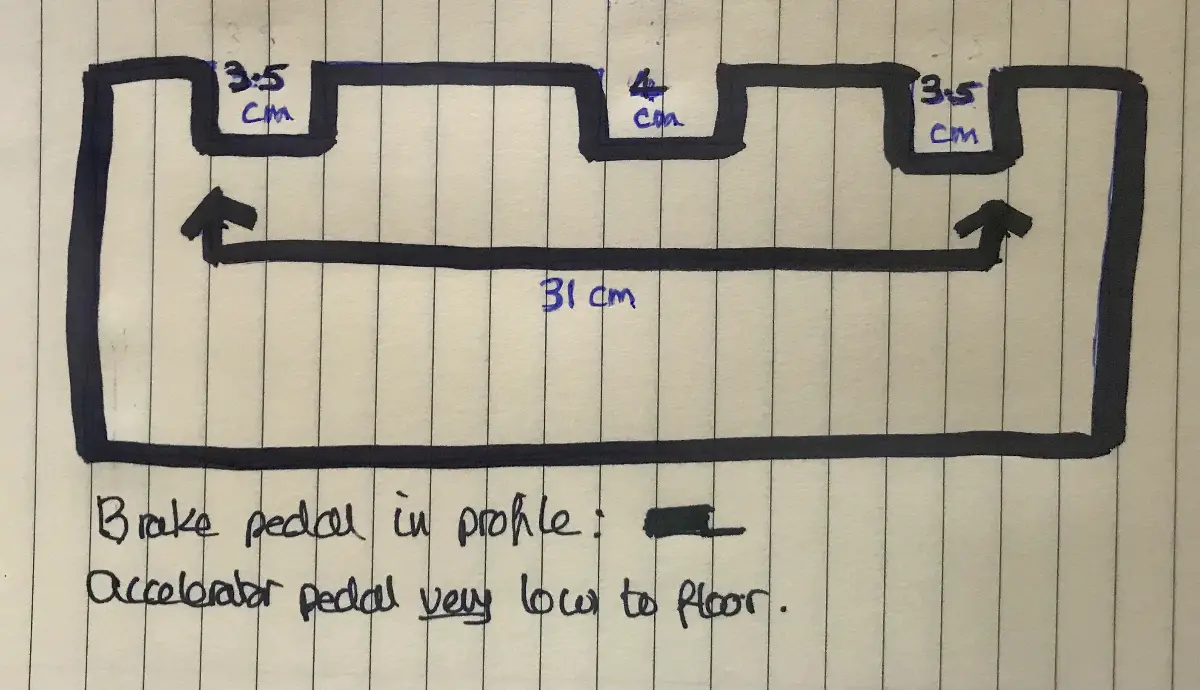 3.5 4 3.5
cm cm cm
31 cm
Brake pedal in profile:
Accelerator pedal very low to floor.